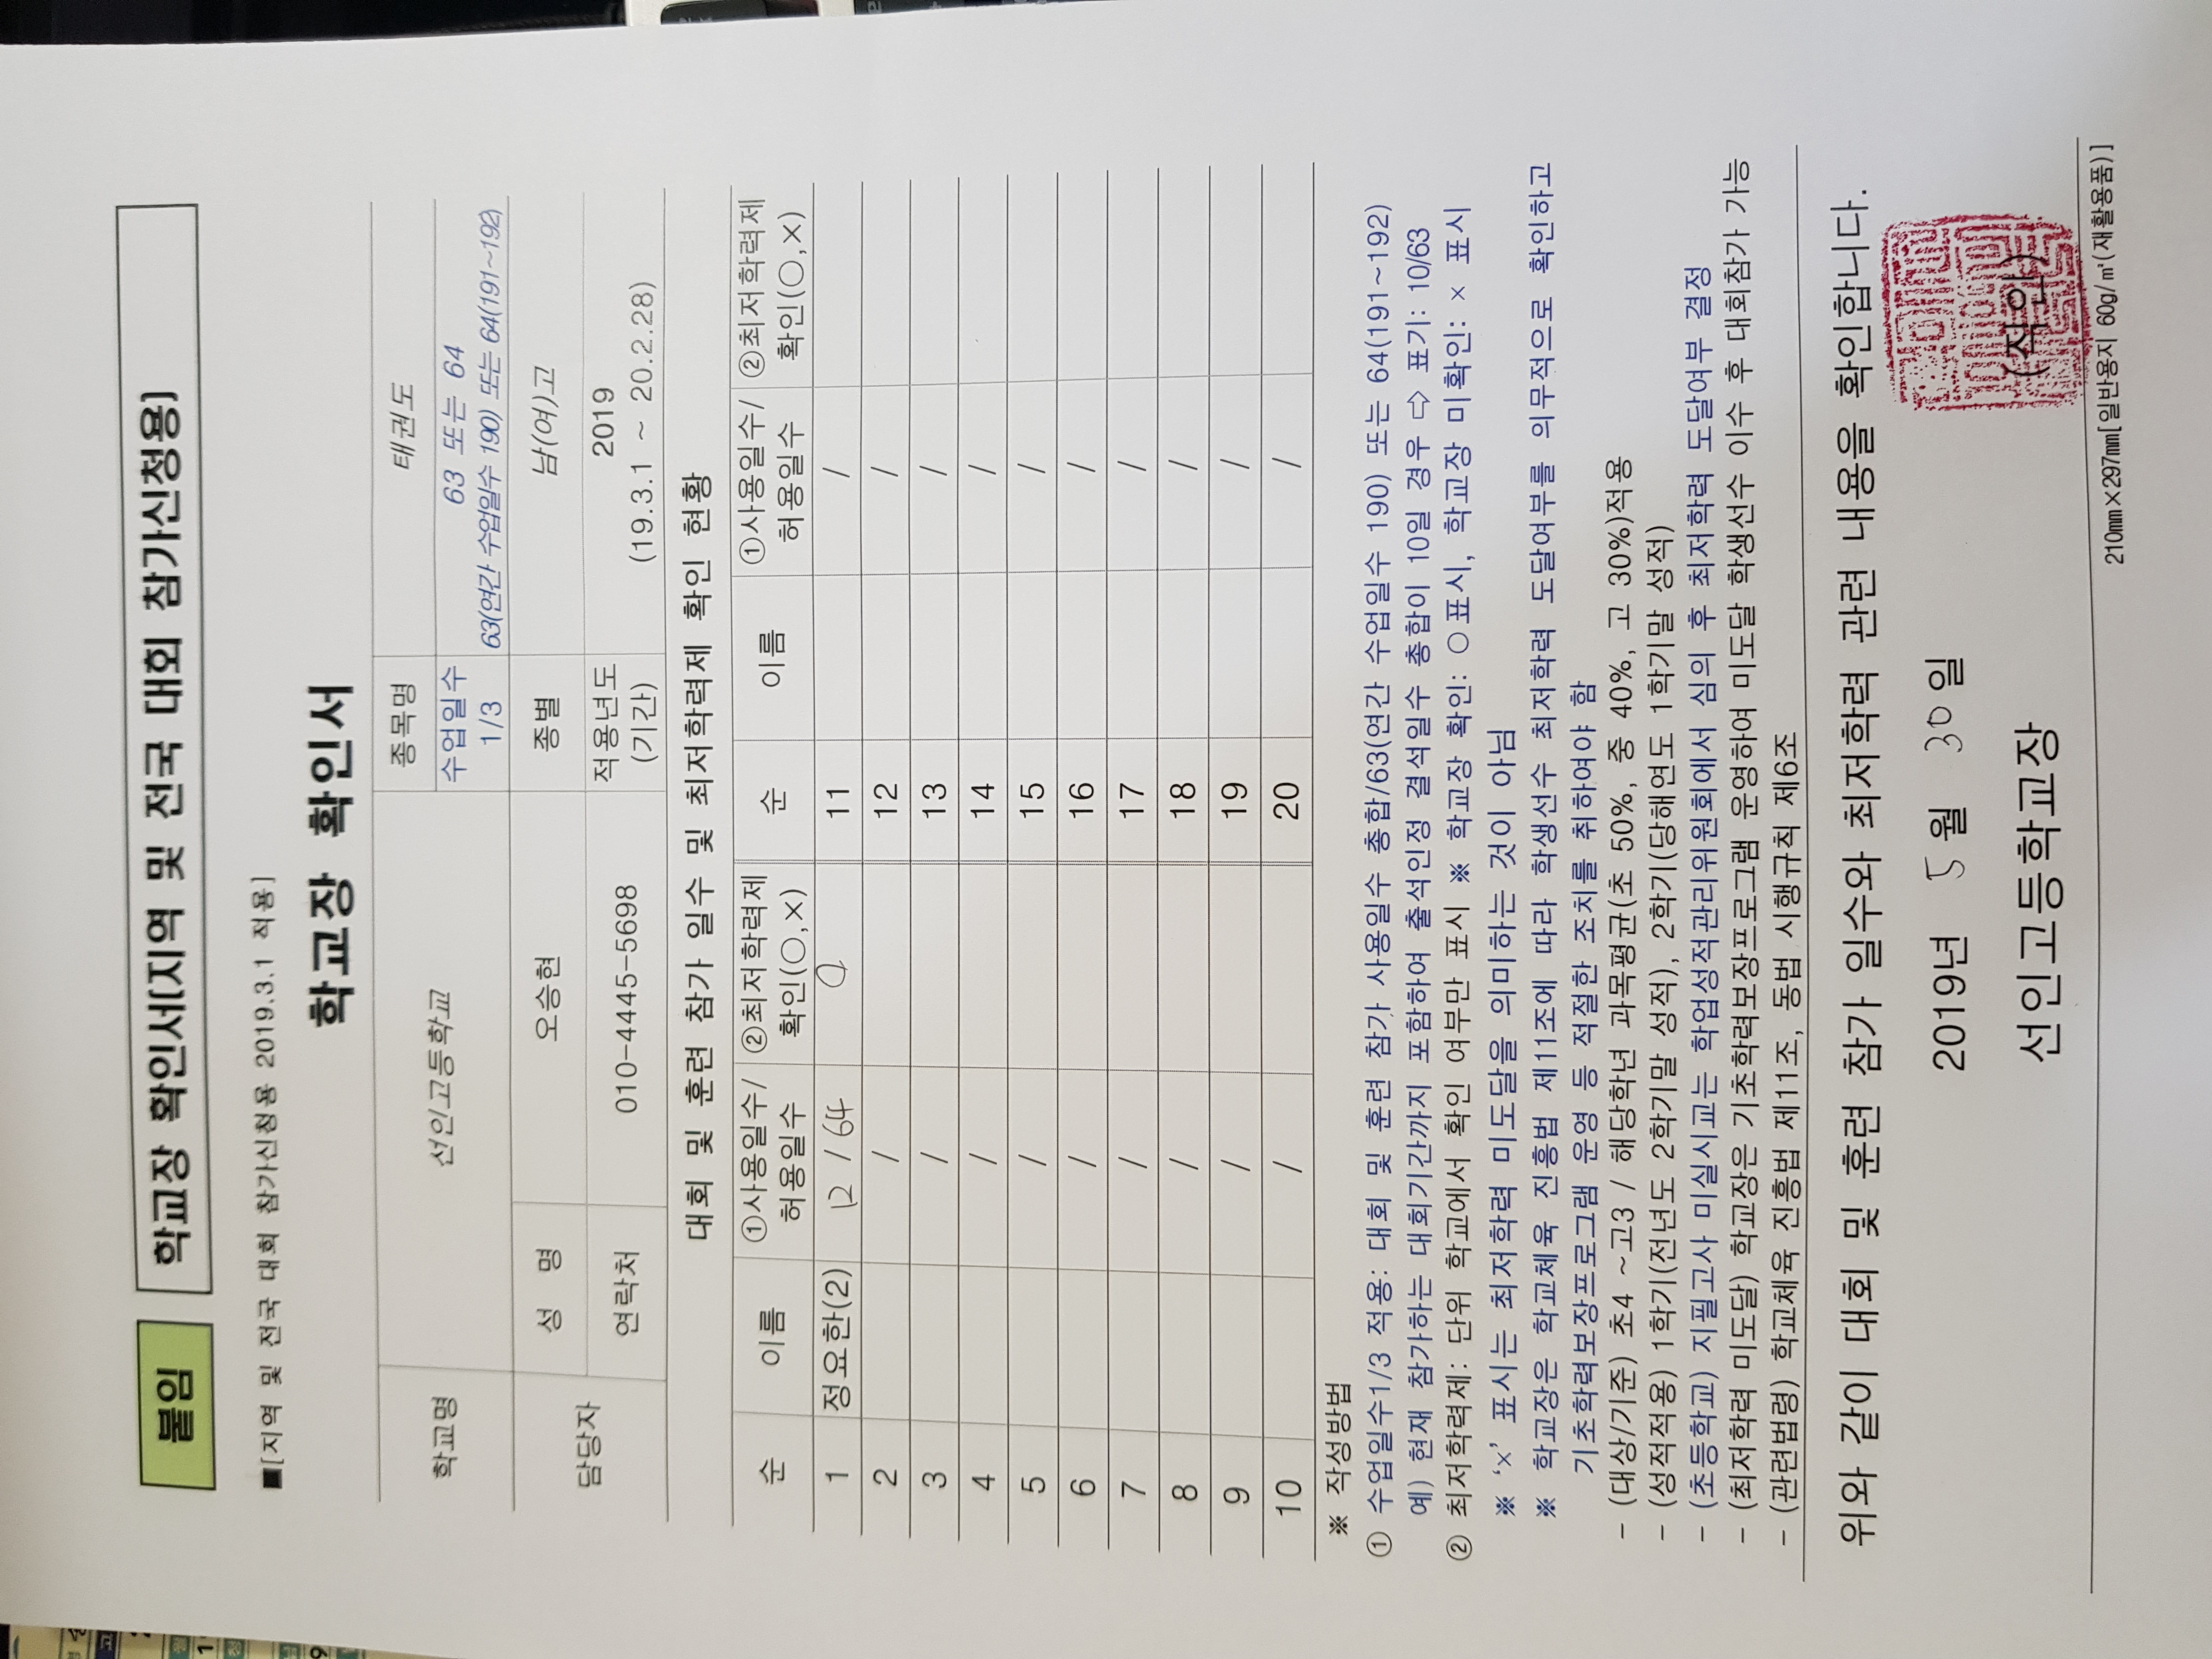 붙임
학교장 확인서(지역 및 전국 대회 참가신청용)
■[지역 및 전국 대회 참가신청용 2019.3.1 적용]
학교장 확인서
학교명 선인고등학교 종목명 태권도
수업일수 1/3 63 또는 64
63(연간 수업일수 190) 또는 64(191~192)
담당자 성 명 오승현 종별 남(여)고
연락처 010-4445-5698 적용년도 (기간) 2019
(19.3.1 ~ 20.2.28)
대회 및 훈련 참가 일수 및 최저학력제 확인 현황
순 이름 ①사용일수/허용일수 ②최저학력제 확인(○,×) 순 이름 ①사용일수/허용일수 ②최저학력제 확인(○,×)
1 정요한(2) 12 / 64 O 11 /
2 / 12 /
3 / 13 /
4 / 14 /
5 / 15 /
6 / 16 /
7 / 17 /
8 / 18 /
9 / 19 /
10 / 20 /
※ 작성방법
① 수업일수1/3 적용: 대회 및 훈련 참가 사용일수 총합/63(연간 수업일수 190) 또는 64(191~192)
예) 현재 참가하는 대회기간까지 포함하여 출석인정 결석일수 총합이 10일 경우 ⇨ 표기: 10/63
② 최저학력제: 단위 학교에서 확인 여부만 표시 ※ 학교장 확인: ○표시, 학교장 미확인: × 표시
※ ‘×’ 표시는 최저학력 미도달을 의미하는 것이 아님
※ 학교장은 학교체육 진흥법 제11조에 따라 학생선수 최저학력 도달여부를 의무적으로 확인하고
기초학력보장프로그램 운영 등 적절한 조치를 취하여야 함
- (대상/기준) 초4 ~고3 / 해당학년 과목평균(초 50%, 중 40%, 고 30%)적용
- (성적적용) 1학기(전년도 2학기말 성적), 2학기(당해연도 1학기말 성적)
- (초등학교) 지필고사 미실시교는 학업성적관리위원회에서 심의 후 최저학력 도달여부 결정
- (최저학력 미도달) 학교장은 기초학력보장프로그램 운영하여 미도달 학생선수 이수 후 대회참가 가능
- (관련법령) 학교체육 진흥법 제11조, 동법 시행규칙 제6조
위와 같이 대회 및 훈련 참가 일수와 최저학력 관련 내용을 확인합니다.
2019년 5월 30일
선인고등학교장 (직인)
210㎜×297㎜[일반용지 60g/㎡(재활용품)]